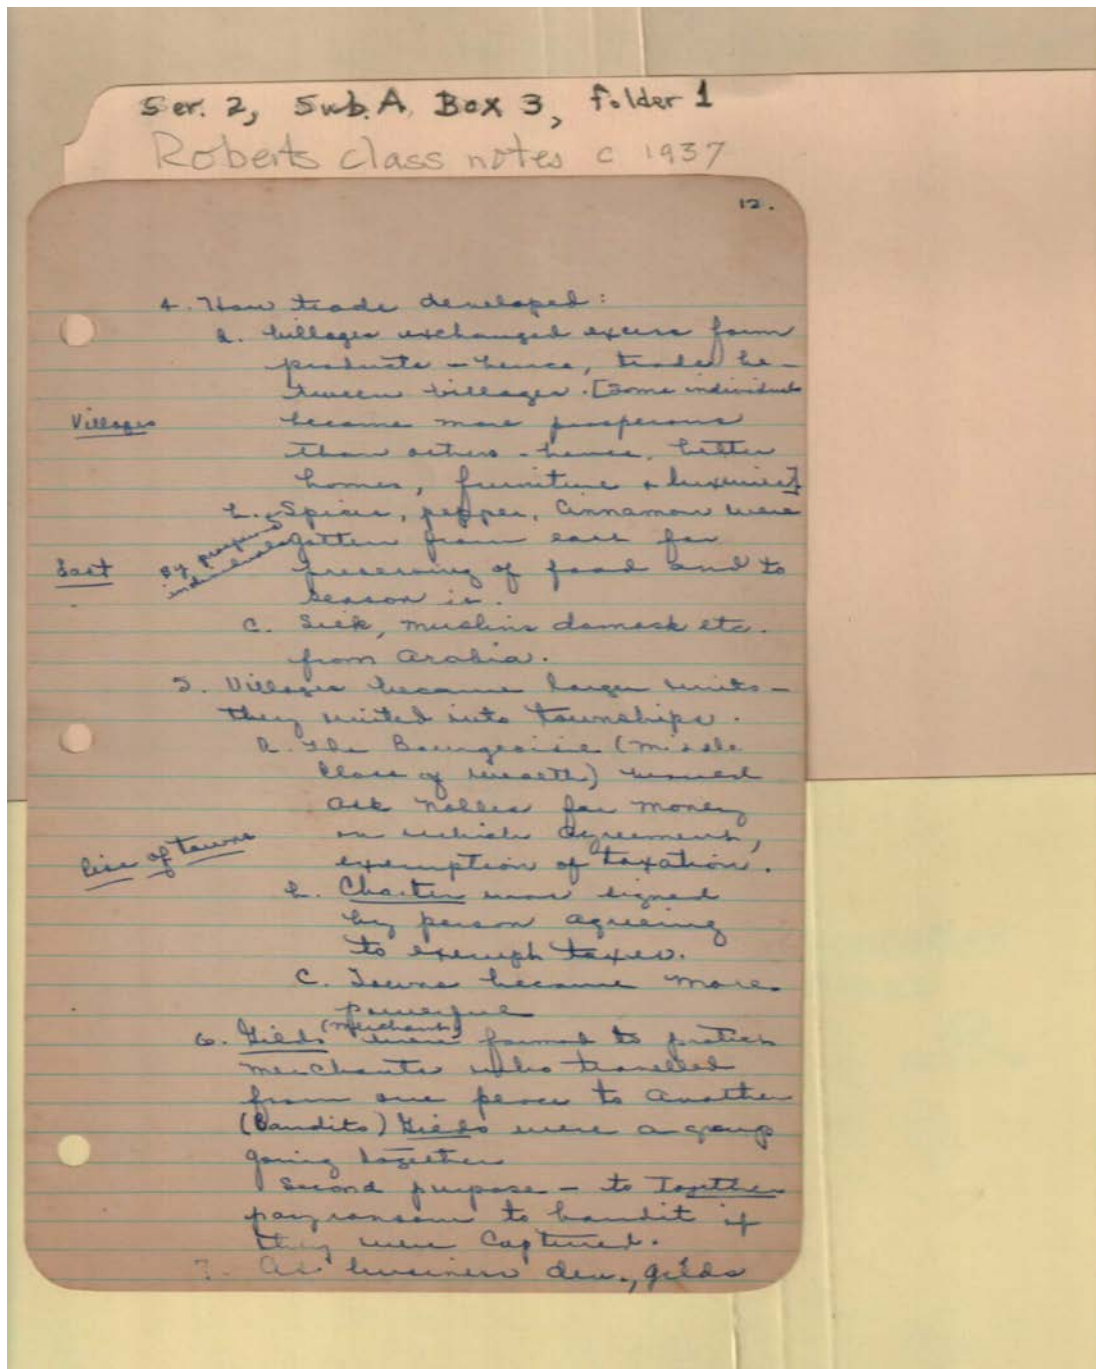 Ser. 2, Sub. A, Box 3, folder 1
Roberts class notes c 1937
12.
4. How trade developed:
a. Villages exchanged excess farm
products - hence, trade be-
tween villages. [Some individuals
Villages
became more prosperous
than others - hence, better
homes, furniture + luxuries]
b. Spices, pepper, cinnamon were
By prosperous individuals
gotten from east for
East
preserving of food and to
season it.
c. Silk, muslins damask etc.
from Arabia.
5. Villages became larger units -
they united into townships.
a. The Bourgeoisie (middle
class of wealth) would
ask nobles for money
on which agreement,
Rise of towns
exemption of taxation.
b. Charter was signed
by person agreeing
to exempt taxes.
C. Towns became more
powerful
6. Gilds (merchants) were formed to protect
merchants who travelled
from one place to another
(Bandits) Gilds were a group
going together
Second purpose - to together
pay ransom to bandit if
they were captured.
7. As business dev., gilds